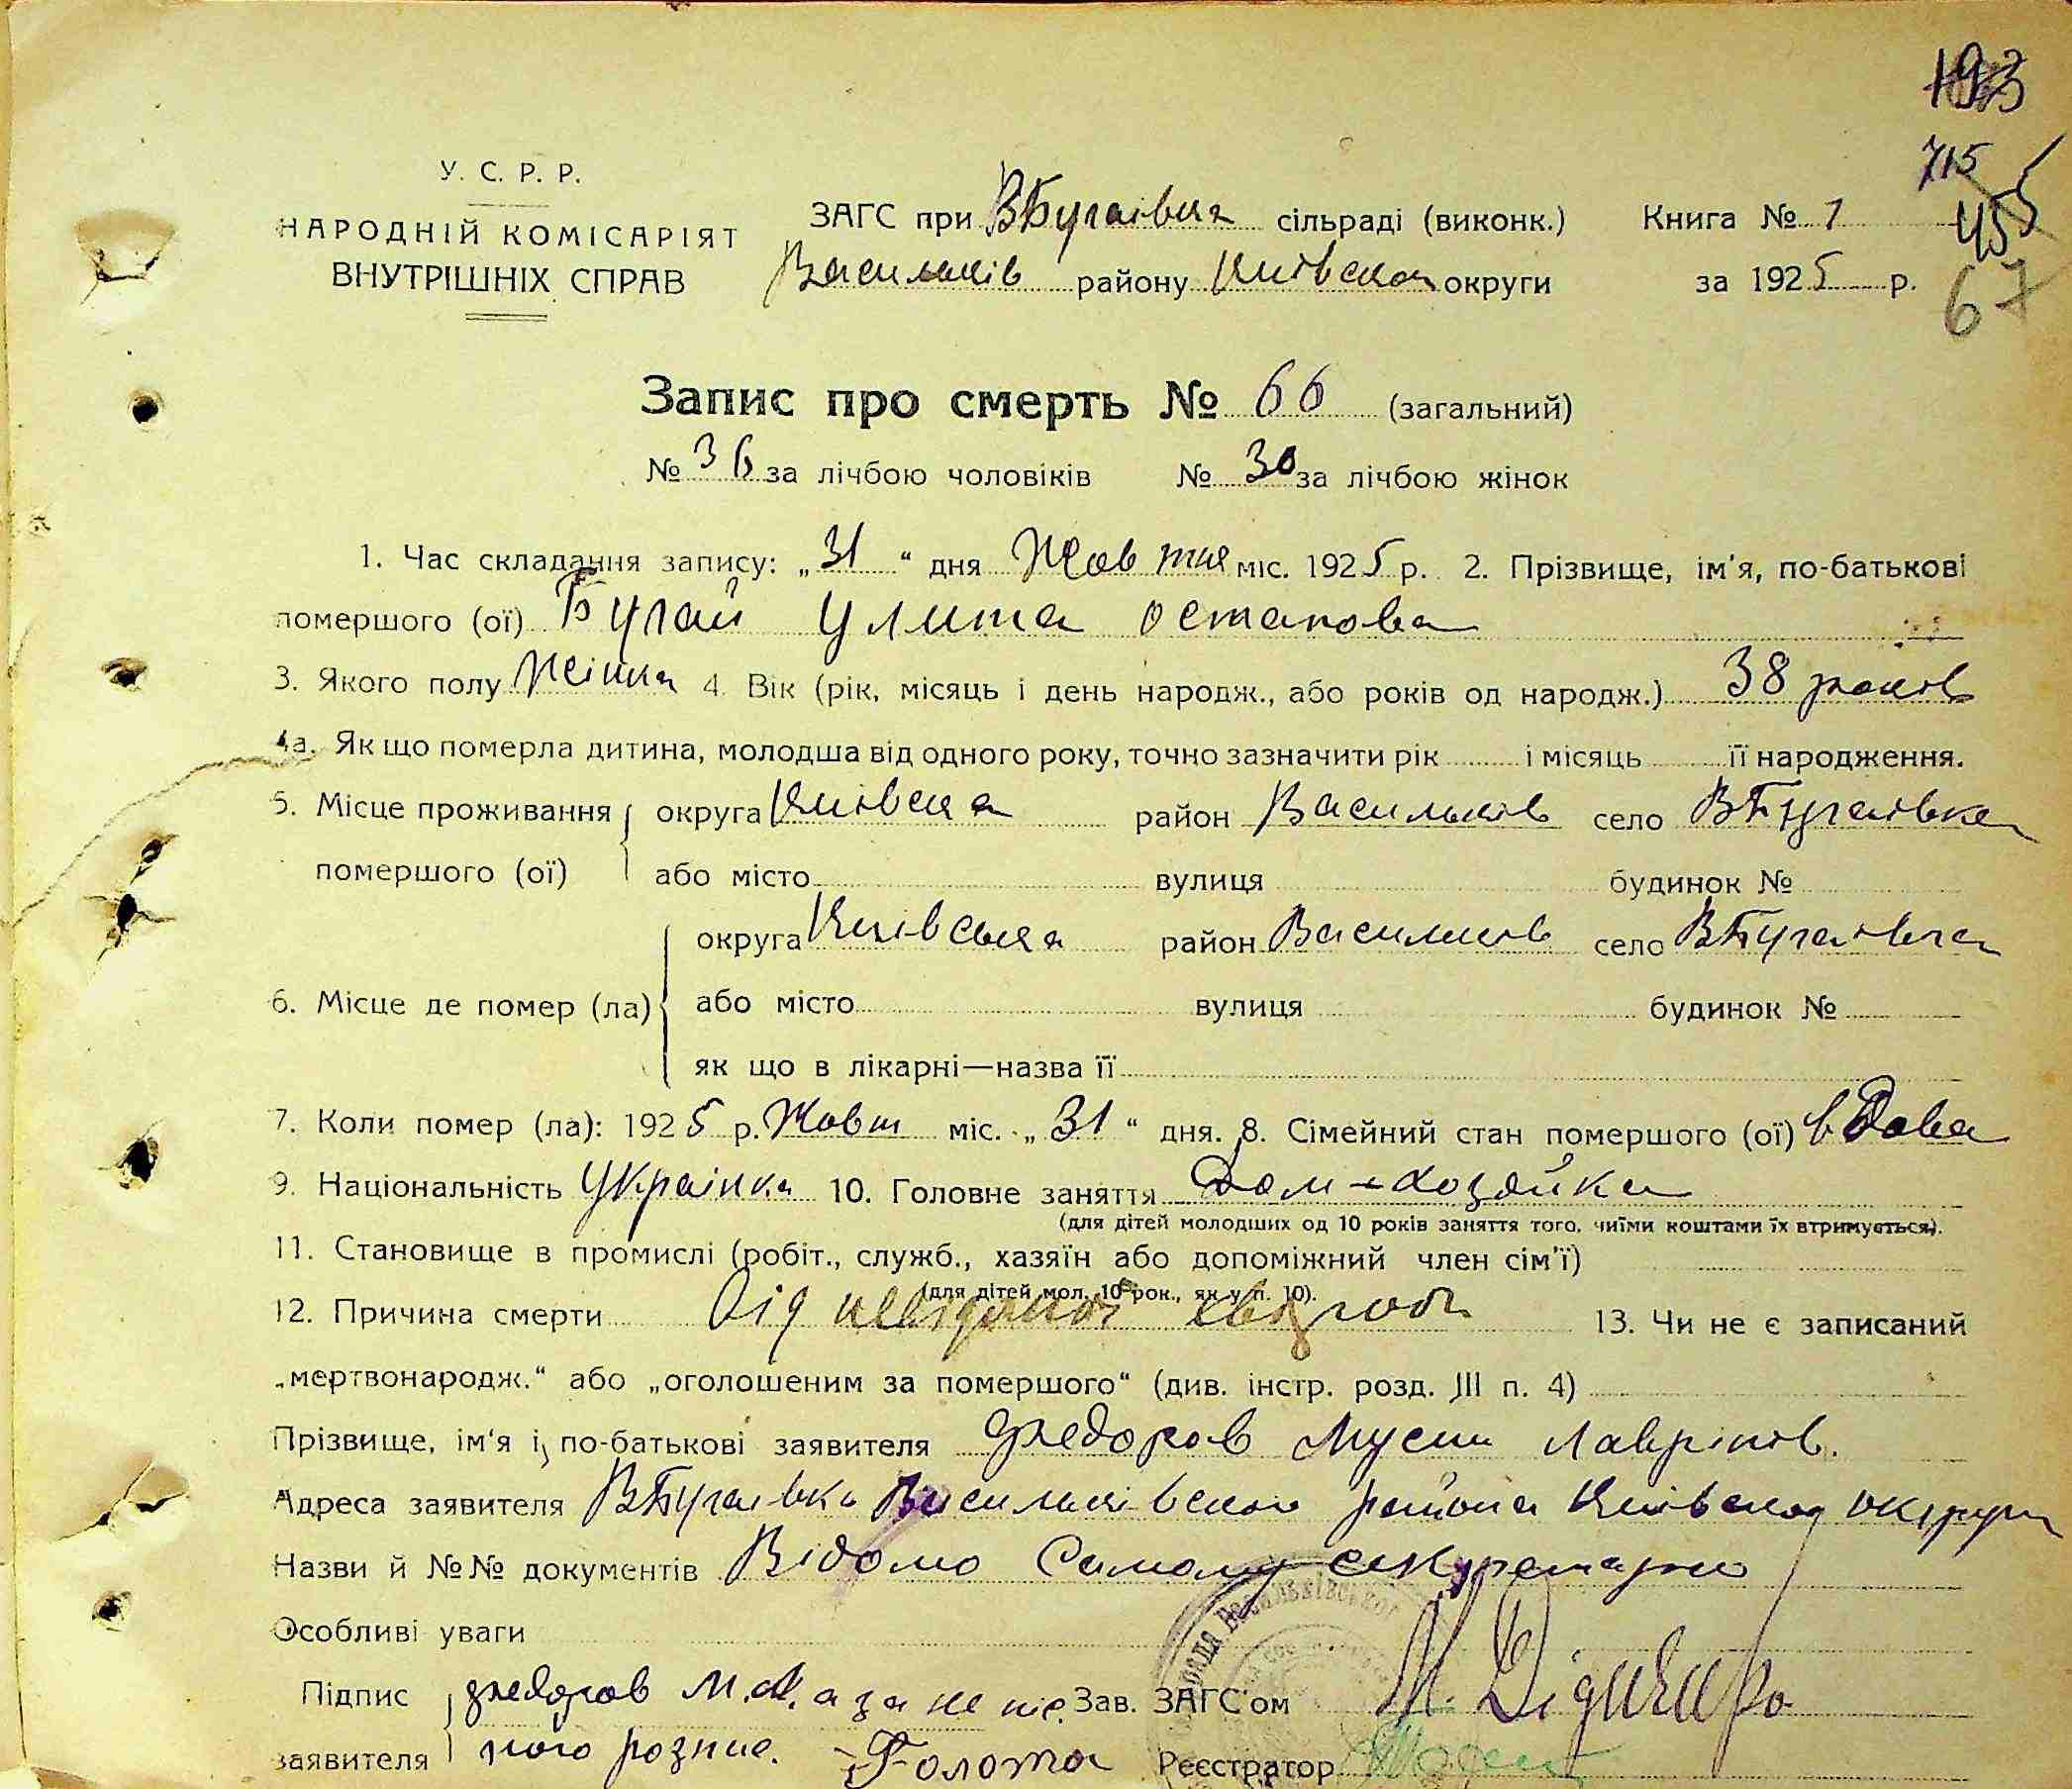 193
715
У. С. Р. Р.
ЗАГС при ВБугаївка сільраді (виконк.) Книга № 1 455
НАРОДНІЙ КОМІСАРІЯТ
ВНУТРІШНІХ СПРАВ Васильків району Київскои округи за 1925 р. 67
Запис про смерть № 66 (загальний)
№ 36 за лічбою чоловіків № 30 за лічбою жінок
1. Час складання запису: „31“ дня Жовтня міс. 1925 р. 2. Прізвище, ім'я, по-батькові
помершого (ої) Бугай Улита Остапова
3. Якого полу Жінка 4. Вік (рік, місяць і день народж., або років од народж.) 38 років
4а. Як що померла дитина, молодша від одного року, точно зазначити рік і місяць її народження.
5. Місце проживання округа Київска район Васильків село ВБугаівка
помершого (ої) або місто вулиця будинок №
округа Київська район Васильків село ВБугаівка
6. Місце де помер (ла) або місто вулиця будинок №
як що в лікарні—назва її
7. Коли помер (ла): 1925 р. Жовт міс. „31“ дня. 8. Сімейний стан помершого (ої) вдова
9. Національність Українка 10. Головне заняття Дом-хозяйка
(для дітей молодших од 10 років заняття того, чиїми коштами їх втримується).
11. Становище в промислі (робіт., служб., хазяїн або допоміжний член сім'ї)
(для дітей мол. 10 рок., як у п. 10).
12. Причина смерти Від невідомої 13. Чи не є записаний
„мертвонародж.“ або „оголошеним за помершого“ (див. інстр. розд. III п. 4)
Прізвище, ім'я і по-батькові заявителя Федоров Мусий Лаврінов.
Адреса заявителя ВБугаївка Васильківскои района Київскои округи
Назви й №№ документів Відомо Самому секуретарю
Особливі уваги
Підпис Федоров М. Л. а за не пис. Зав. ЗАГС'ом М. Дідиченко
заявителя ного розпис. Голота Реєстратор